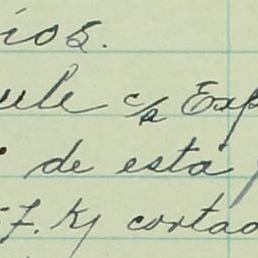 ios.
ule c/a Exp
de esta
7. Kj cortad